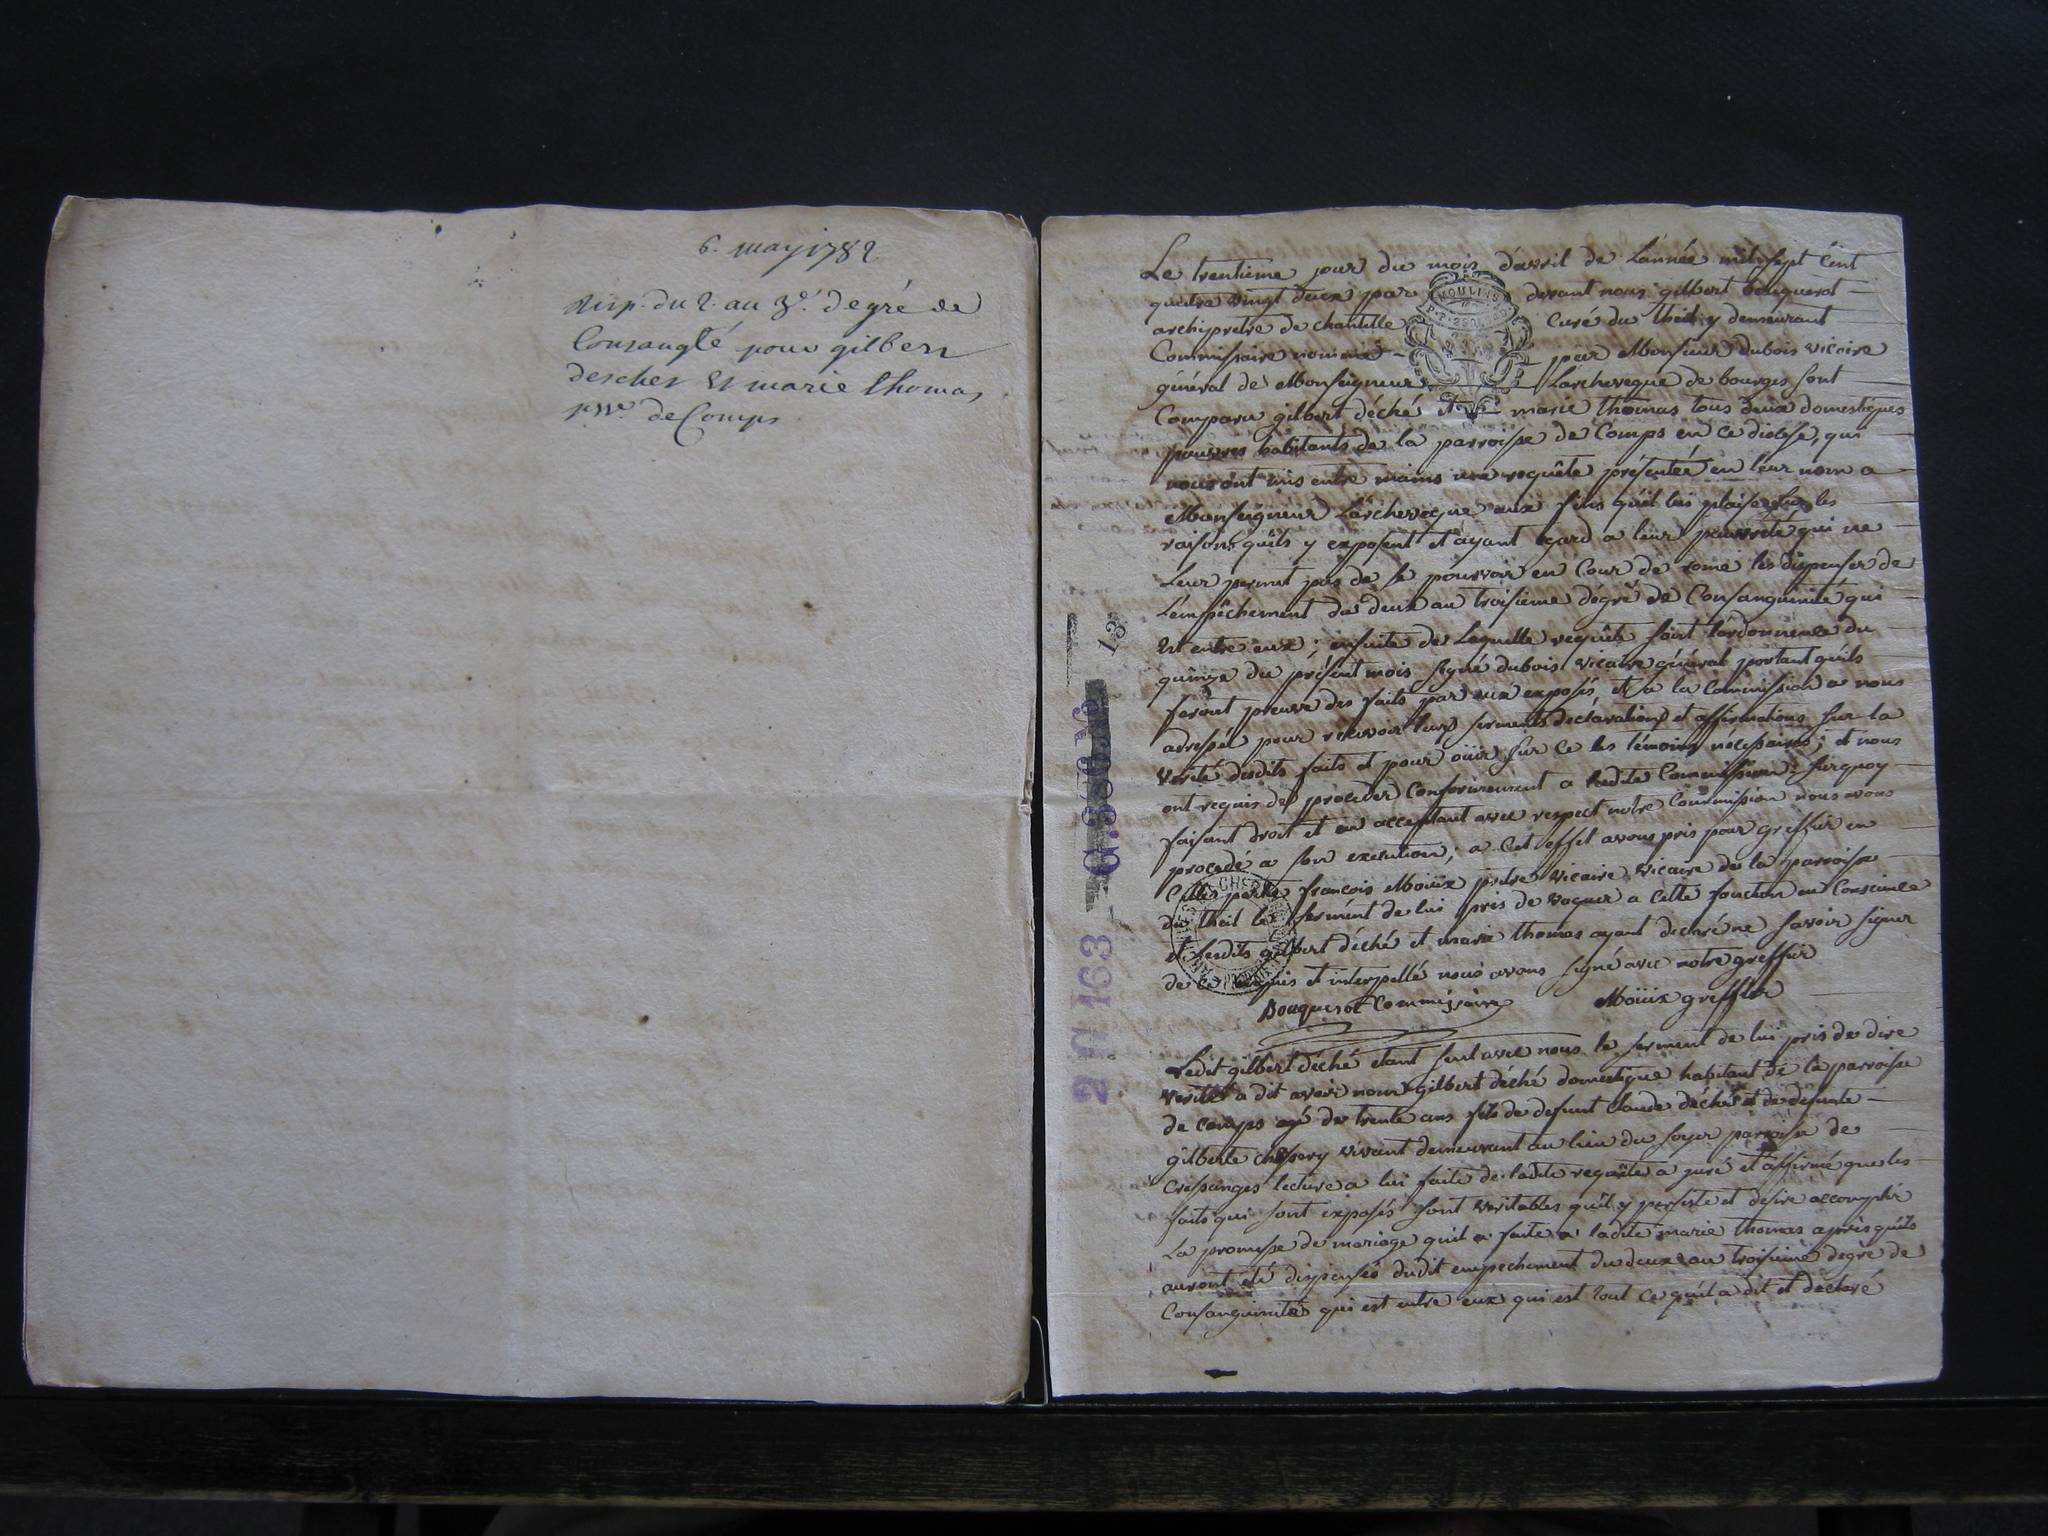 6. may 1782
disp. du 2. au 3e. degré de
Consangté pour gilbert
descher et marie thomas
psse. de Comps
Le trentieme jour du mois d'avril de l'année mil sept Cent
quatre vingt deux par devant nous gilbert bouquerot
archiprêtre de chantelle Curé du theil y demeurant
Commissaire nommé par Monsieur dubois vicaire
général de Monseigneur L'archeveque de bourges sont
Comparu gilbert déché et marie thomas tous deux domestiques
pauvres habitants de la parroisse de Comps en ce diocese, qui
nous ont mis entre mains une requête présentée en leur nom a
Monseigneur L'archeveque aux fins qu'il lui plaise les
raisons qu'ils y exposent et ayant egard a leur pauvreté qui ne
Leur permet pas de se pourvoir en Cour de rome les dispenser de
L'empêchement du deux au troisieme dégré de Consanguinité qui
Est entre eux ; ensuite de Laquelle requête sont l'ordonnance du
quinze du présent mois signé dubois vicaire général portant qu'ils
feront preuve des faits par eux exposés, et a la Commission a nous
adressée pour recevoir leurs serments déclarations et affirmations sur la
Verité desdits faits et pour oüir sur ce les témoins nécessaires ; et nous
ont requis de proceder Conformement a ladite Commission ; surquoy
faisant droit et en acceptant avec respect notre Commission nous avons
procedé a son execution ; a Cet effet avons pris pour greffier en
Cette partie françois Moiiix prêtre vicaire vicaire de la parroisse
du theil le serment de lui pris de vaquer a Cette fonction en Conscience
et lesdits gilbert déché et marie thomas ayant declaré ne savoir signer
de ce requis et interpellé nous avons signé avec notre greffier
MOULINS
Bouquerot Commissaire Moiiix greffier
Ledit gilbert déché etant seul avec nous le serment de lui pris de dire
verité a dit avoir nom gilbert déché domestique habitant de la parroisse
de Comps agé de trente ans fils de defunt Claude déché et de defunte
gilberte vivant demeurant au lieu du foyer parroisse de
Cressanges lecture a lui faite de ladite requête a juré et affirmé que les
faits qui sont exposés sont veritables qu'il y persiste et desire accomplir
La promesse de mariage qu'il a faite a ladite marie thomas apres qu'ils
auront été dispensés dudit empechement du deux au troisieme degré de
Consanguinité qui est entre eux qui est tout ce qu'il a dit et declaré
13
2 G 163